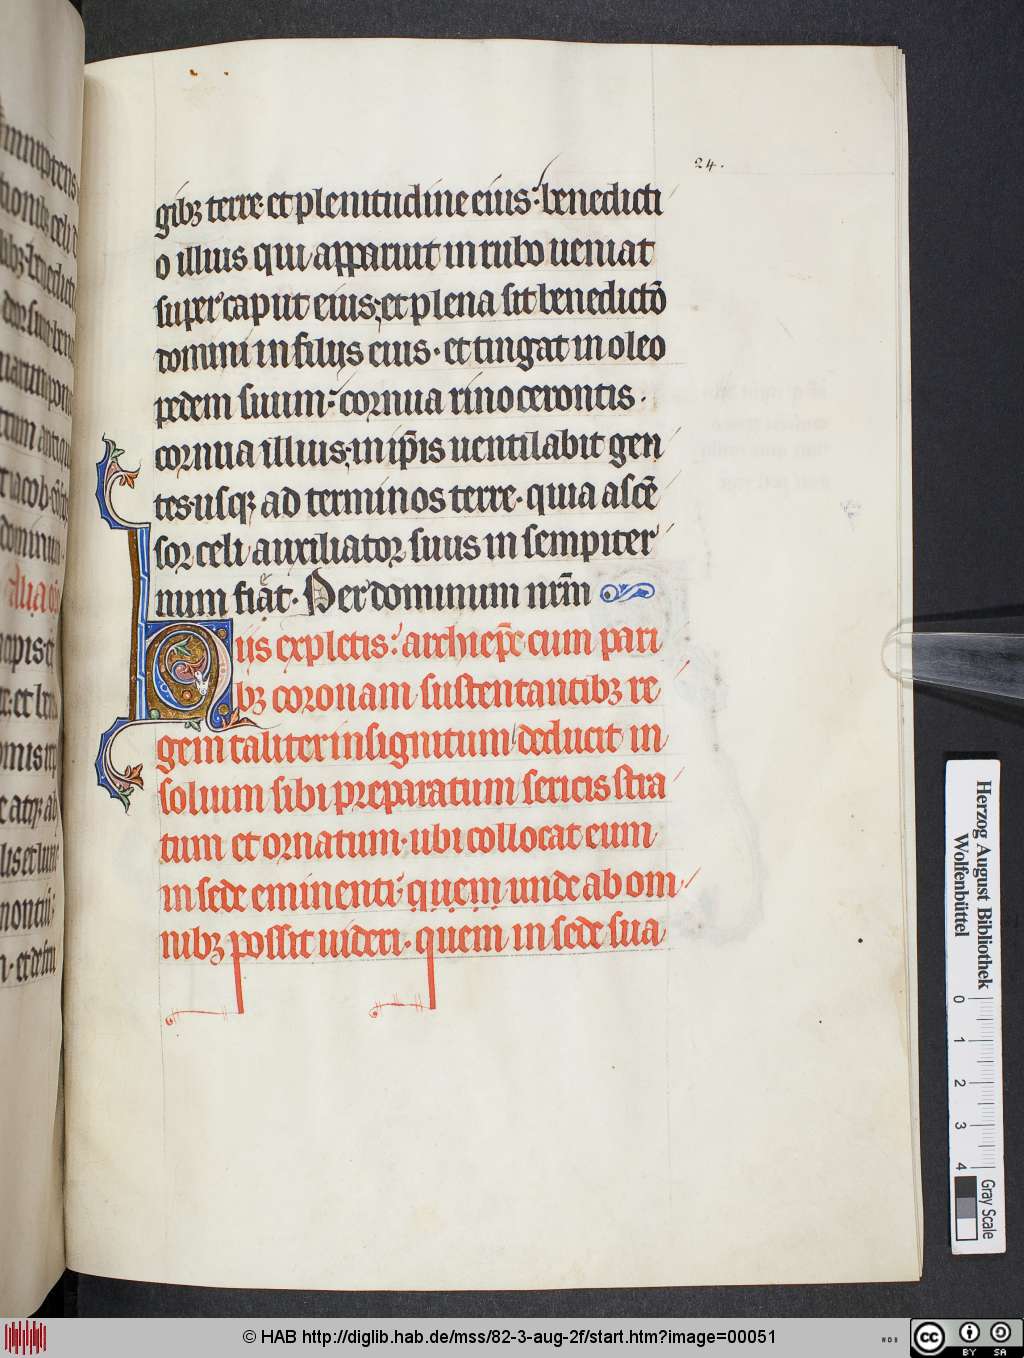 24.
gibꝫ terre et plenitudine eius. benedicti
o illius qui apparuit in rubo ueniat
super caput eius; et plena sit benedictō
domini in filijs eius. et tingat in oleo
pedem suum. cornua rinocerontis.
cornua illius; in ip̄is uentilabit gen
tes. usqꝫ ad terminos terre. quia ascē
sor celi auxiliator suus in sempiter
num fiat. Per dominum nr̄m
Hijs expletis. archiep̄c cum pari
bꝫ coronam sustentantibꝫ re
gem taliter insignitum deducit in
solium sibi preparatum sericis stra
tum et ornatum. ubi collocat eum
in sede eminenti. quem unde ab om
nibꝫ possit uideri. quem in sede sua
Herzog August Bibliothek
Wolfenbüttel
0 1 2 3 4
Gray Scale
© HAB http://diglib.hab.de/mss/82-3-aug-2f/start.htm?image=00051
WDB
cc BY SA